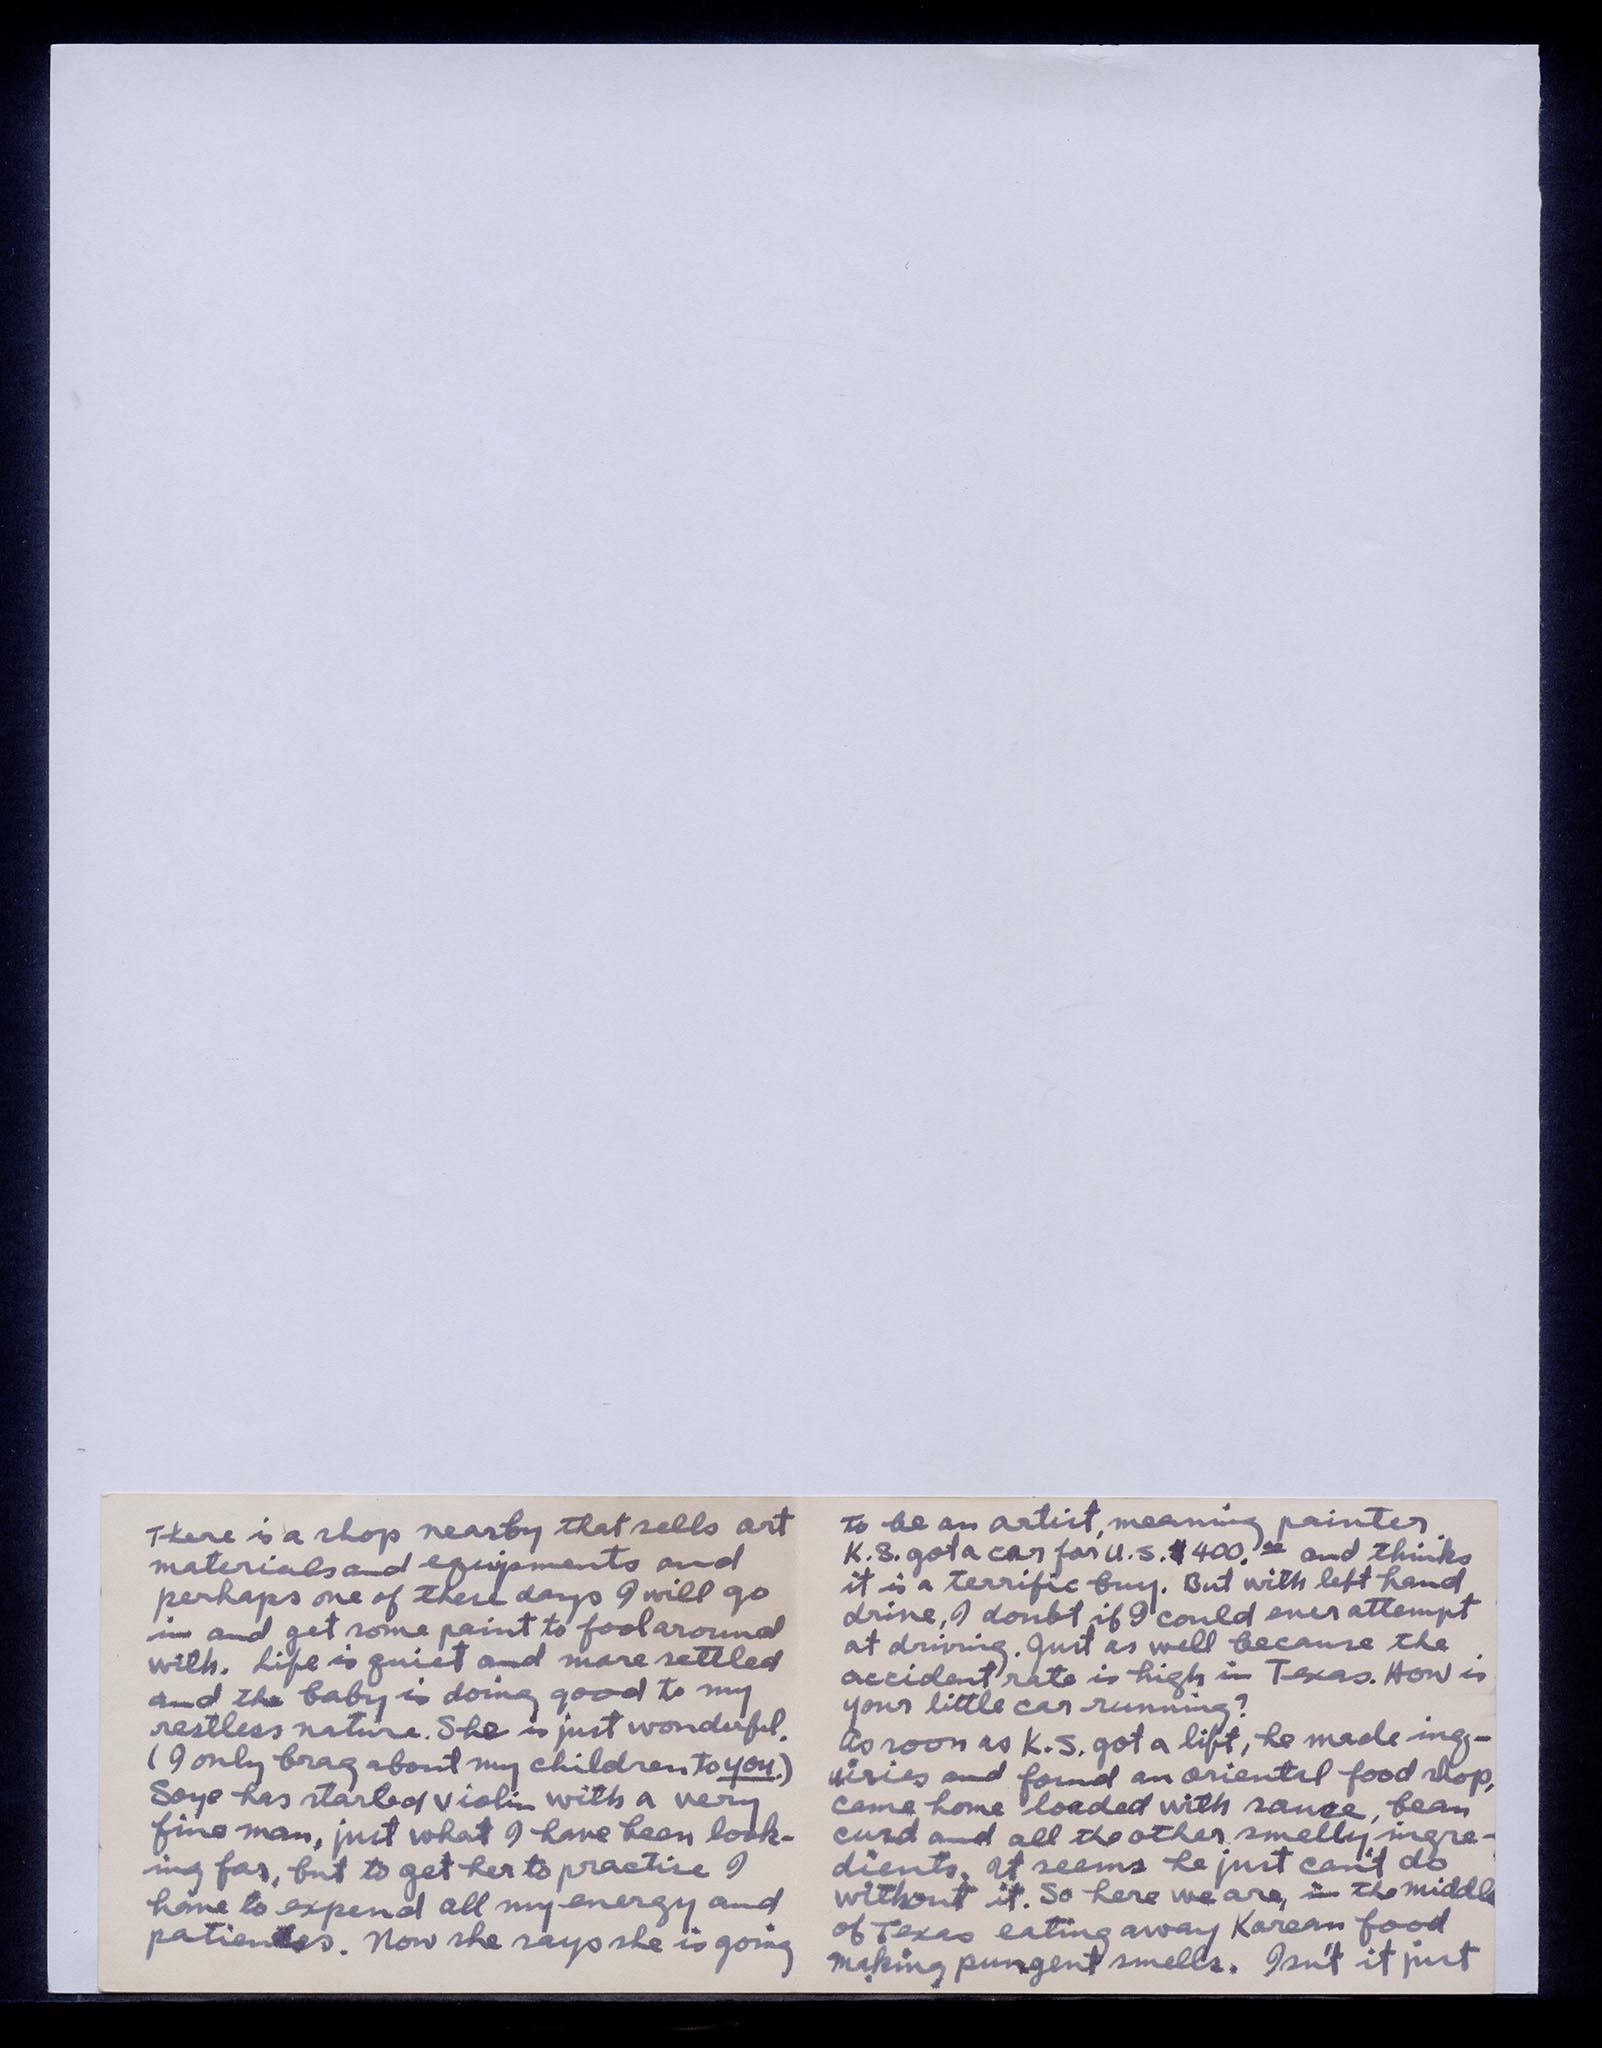 There is a shop nearby that sells art
materials and equipments and
perhaps one of these days I will go
in and get some paint to fool around
with. Life is quiet and more settled
and the baby is doing good to my
restless nature. She is just wonderful.
(I only brag about my children to you.)
Soye has started violin with a very
fine man, just what I have been look-
ing for, but to get her to practise I
have to expend all my energy and
patiences. Now she says she is going
to be an artist, meaning painter.
K.S. got a car for U.S. $400.00 and thinks
it is a terrific buy. But with left hand
drive, I doubt if I could ever attempt
at driving. Just as well because the
accident rate is high in Texas. How is
your little car running?
As soon as K.S. got a lift, he made inqu-
iries and found an oriental food shop,
came home loaded with sauce, bean
curd and all the other smelly ingre-
dients. It seems he just can't do
without it. So here we are, in the middle
of Texas eating away Korean food
making pungent smells. Isn't it just